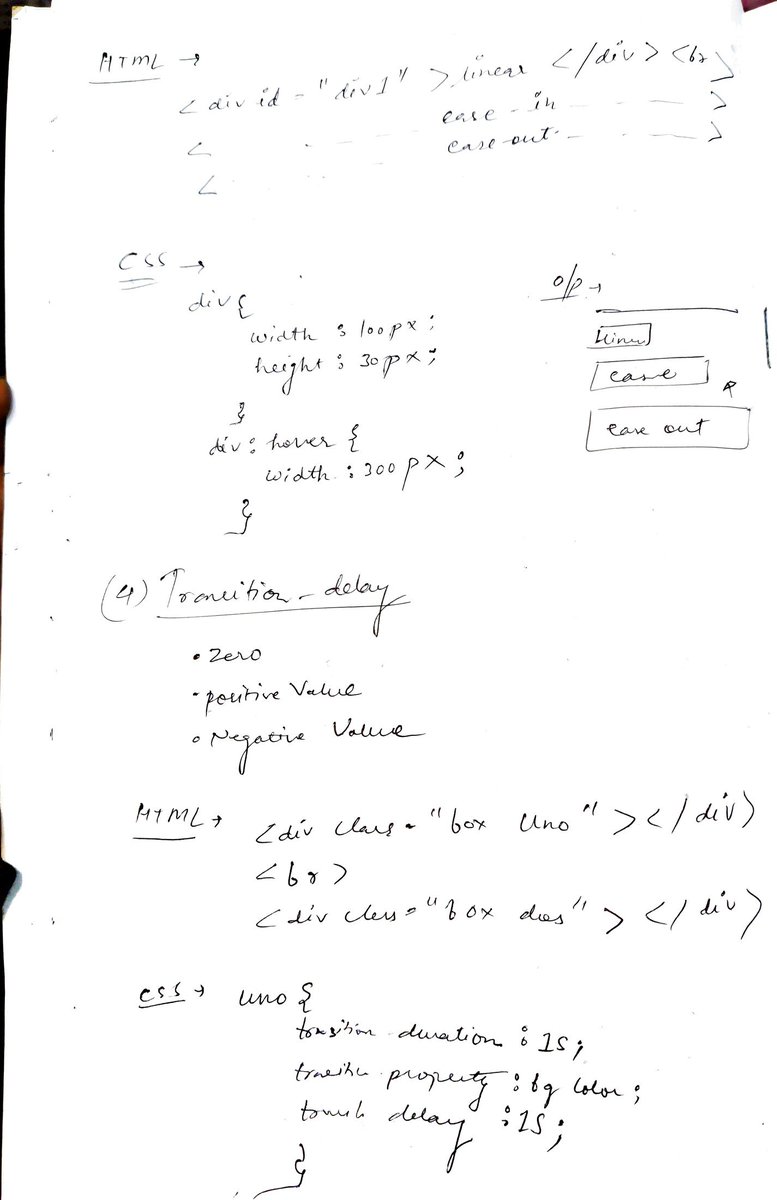 HTML →
<div id = "div1" > linear </div> <br>
< ease-in >
< ease-out >
CSS →
div{
width : 100px ;
height : 30px ;
}
div : hover {
width : 300px ;
}
o/p →
ease
ease out
(4) Transition-delay
• Zero
• positive Value
• Negative Value
HTML →
<div class = "box uno" > </div>
<br>
<div class = "box dos" > </div>
CSS → uno {
duration : 1s ;
property : bg color ;
delay : 1s ;
}